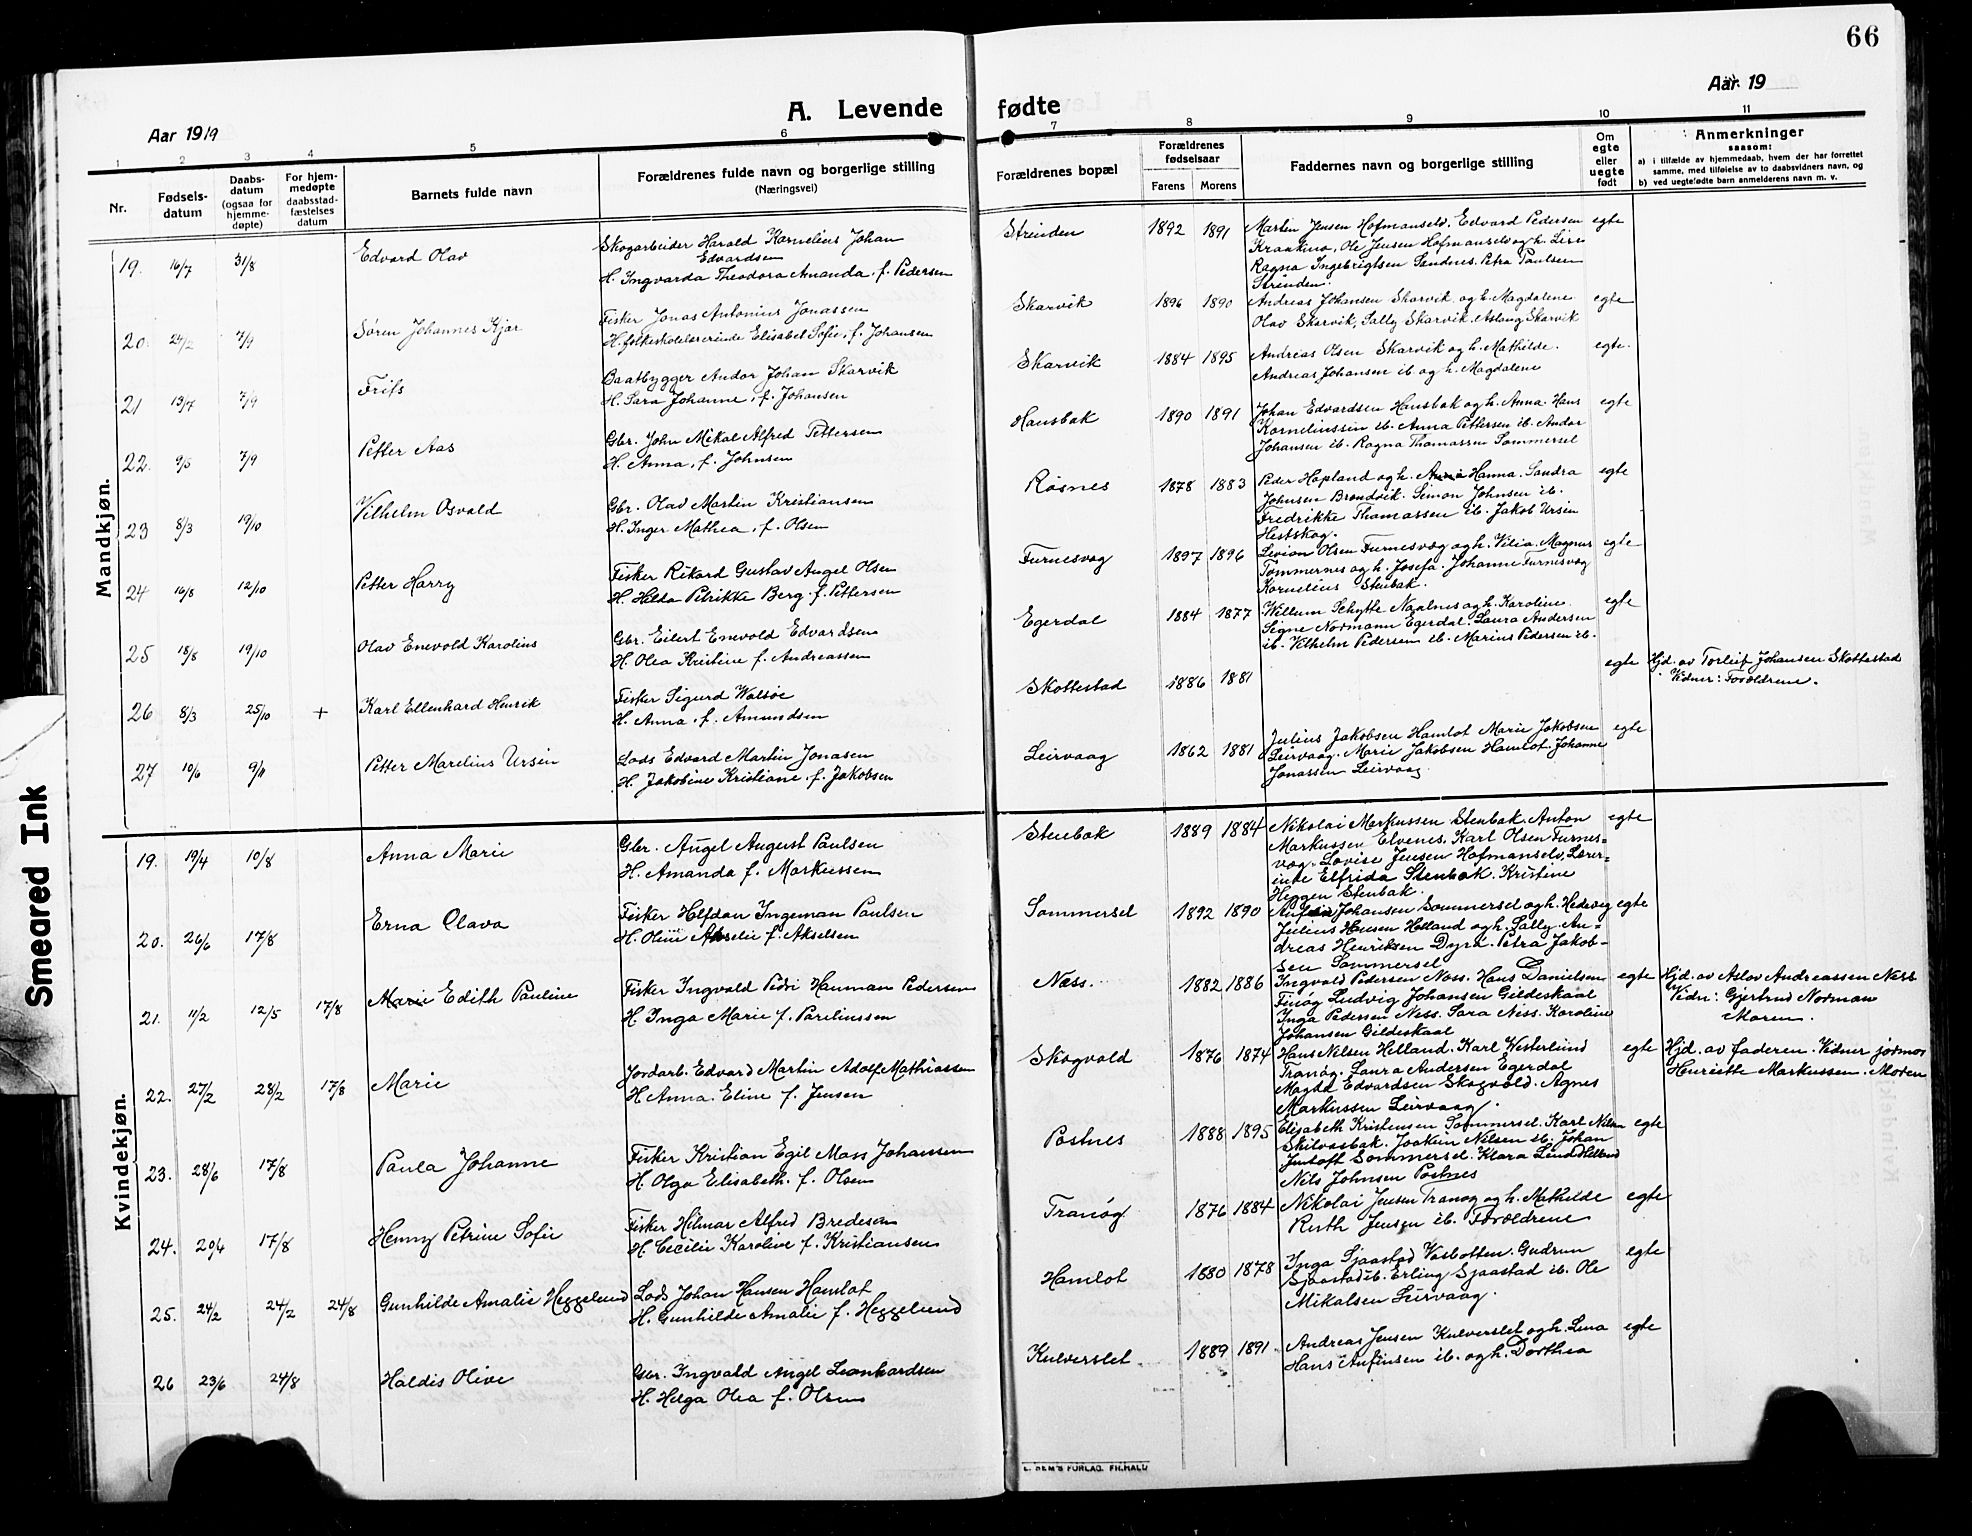 66
Aar 1919
A. Levende fødte
Aar 19
1 2 3 4 5 6 7 8 9 10 11
Nr.
Fødsels-
datum
Daabs-
datum
(ogsaa for
hjemme-
døpte)
For hjem-
medøpte
daabsstad-
fæstelses
datum
Barnets fulde navn
Forældrenes fulde navn og borgerlige stilling
(Næringsvei)
Forældrenes bopæl
Forældrenes
fødselsaar
Farens Morens
Faddernes navn og borgerlige stilling
Om
egte
eller
uegte
født
Anmerkninger
saasom:
a) i tilfælde av hjemmedaab, hvem der har forrettet
samme, med tilføielse av to daabsvidners navn, og
b) ved uegtefødte barn anmelderens navn m. v.
Mandkjøn.
19. 16/7 31/8 Edvard Olav
Skogarbeider Harald Kornelius Johan
Edvardsen
H. Ingvarda Theodora Amanda, f. Pedersen
Strinden 1892 1891
Martin Jensen Hofmanselv. Edvard Pedersen
Kraakmo, Ole Jensen Hofmanselv og h.
Ragna Ingebrigtsen Sandnes. Petra Paulsen
Strinden.
egte
20. 24/2 7/9 Søren Johannes Kjær
Fisker Jonas Antonius Jonassen
H. folkeskolelærerinde Elisabet Sofie, f. Johansen
Skarvik 1896 1890
Andreas Johansen Skarvik og h. Magdalene
Olav Skarvik, Sally Skarvik. Aslaug Skarvik
egte
21 13/7 7/9 Frits
Baatbygger Andor Johan Skarvik
H. Sara Johanne, f. Johansen
Skarvik 1884 1895
Andreas Olsen Skarvik og h. Mathilde.
Andreas Johansen ib. og h. Magdalene
egte.
22. 9/5 7/9 Petter Aas
Gbr. John Mikal Alfred Pettersen
H. Anna, f. Johnsen
Hausbak 1890 1891
Johan Edvardsen Hausbak og h. Anna. Hans
Korneliussen ib. Anna Pettersen ib. Andor
Johansen ib. Ragna Thomassen Sommersel
egte
23 8/3 19/10 Vilhelm Osvald
Gbr. Olav Martin Kristiansen
H. Inger Mathea, f. Olsen
Røsnes 1878 1883
Peder Hopland og h. Hanna. Sandra
Johnsen Brendvik. Simon Johnsen ib.
Fredrikke Thomassen ib. Jakob Ursin
Hestskog.
egte
24 16/8 12/10 Petter Harry
Fisker Rikard Gustav Angel Olsen
H. Hilda Petrikke Berg. f. Pettersen
Furnesvag 1897 1896
Levion Olsen Furnesvæg og h. Vilia. Magnus
Tømmernes og h. Josefa. Johanne Furnesvag
Kornelius Stenbak.
egte
25 18/8 19/10 Olav Enevold Karolius
Gbr. Eilert Enevold Edvardsen
H. Olea Kristine f. Andreassen
Egerdal 1884 1877
Willum Schytte Naalnes og h. Karoline
Signe Normann Egerdal Laura Andersen
ib. Vilhelm Pedersen ib. Marius Pedersen ib.
egte
26 8/3 25/10 + Karl Ellenhard Henrik
Fisker Sigurd Walsøe
H. Anna, f. Amundsen
Skottestad 1886 1881
egte
Hjd. av Torleif Johansen Skottestad
Vidner: Forældrene.
27 10/6 9/11 Petter Marelius Ursin
Lods Edvard Martin Jonasen
H. Jakobine Kristiane, f. Jakobsen
Leirvaag 1862 1881
Julius Jakobsen Hamlot Marie Jakobsen
Leirvaag. Marie Jakobsen Hamlot. Johanne
Jonassen Leirvaag
egte
Kvindekjøn.
19. 19/4 10/8 Anna Marie
Gbr. Angel August Paulsen
H. Amanda f. Markussen
Stenbak 1889 1884
Nikolai Markussen Stenbak. Anton
Markussen Elvenes. Karl Olsen Furnes-
vag. Lovise Jensen Hofmanselv. Lærer-
inde Elfrida Stenbak. Kristine
Heggen Stenbak.
egte
20. 26/6 17/8 Erna Olava
Fisker Halfdan Ingeman Paulsen
H. Oline Akselie f. Akselsen
Sommersel 1892 1890
Johansen Sommersel og h. Hedevig
Julius Hansen Helland og h. Sally. An-
dreas Henriksen Dyra. Petra Jakob-
sen Sommersel
egte
21. 11/2 12/5 17/8 Marie Edith Pauline
Fisker Ingvald Pedri Hauman Pedersen
H. Inga Marie f. Pareliussen
Næss. 1882 1886
Ingvald Pedersen Næss. Hans Danielsen
Finøy Ludvig Johansen Gildeskaal
Inga Pedersen Ness. Sara Ness. Karoline
Johansen Gildeskaal
egte
Hjd. av Aslov Andreassen Ness
Vidn: Gjertrud Norman
Moren.
22. 27/2 28/2 17/8 Marie
Jordarb. Edvard Martin Adolf Mathiassen
H. Anna. Eline f. Jensen
Skogvold 1876 1874
Hans Nilsen Helland. Karl Westerlund
Tranøg. Laura Andersen Egerdal
Magda Edvardsen Skogvold. Agnes
Markussen Leirvaag.
egte
Hjd. av faderen. Vidner jordmor
Henriette Markussen. Moren
23. 28/6 17/8 Paula Johanne
Fisker Kristian Egil Mass Johansen
H. Olga Elisabeth. f. Olsen
Postnes 1888 1895
Elisabeth Kristensen Sommersel. Karl Nilsen
Skilvasbak. Joakim Nilsen ib. Johan
Jentoft Sommersel. Klara Lund Helland
Nils Johnsen Postnes
egte
24. 20/4 17/8 Henny Petrine Sofie
Fisker Hilmar Alfred Bredesen
H. Cecilie Karoline f. Kristiansen
Tranøg 1876 1884
Nikolai Jensen Tranøg og h. Mathilde
Ruth Jensen ib. Forældrene
egte
25. 24/2 24/2 24/8 Gunhilde Amalie Heggelund
Lods Johan Hansen Hamlot
H. Gunhilde Amalie f. Heggelund
Hamlot 1880 1878
Inga Sjaastad Vasbotten. Gudrun
Sjaastad ib. Erling Sjaastad ib. Ole
Mikalsen Leirvaag.
egte
26 23/6 24/8 Haldis Olive
Gbr. Ingvald Angel Leonhardsen
H. Helga Olea f. Olsen
Kulverslet 1889 1891
Andreas Jensen Kulverslet og h. Lina
Hans Anfinsen ib. og h. Dorthea
egte
E. SEM'S FORLAG. FR.HALD
Smeared Ink